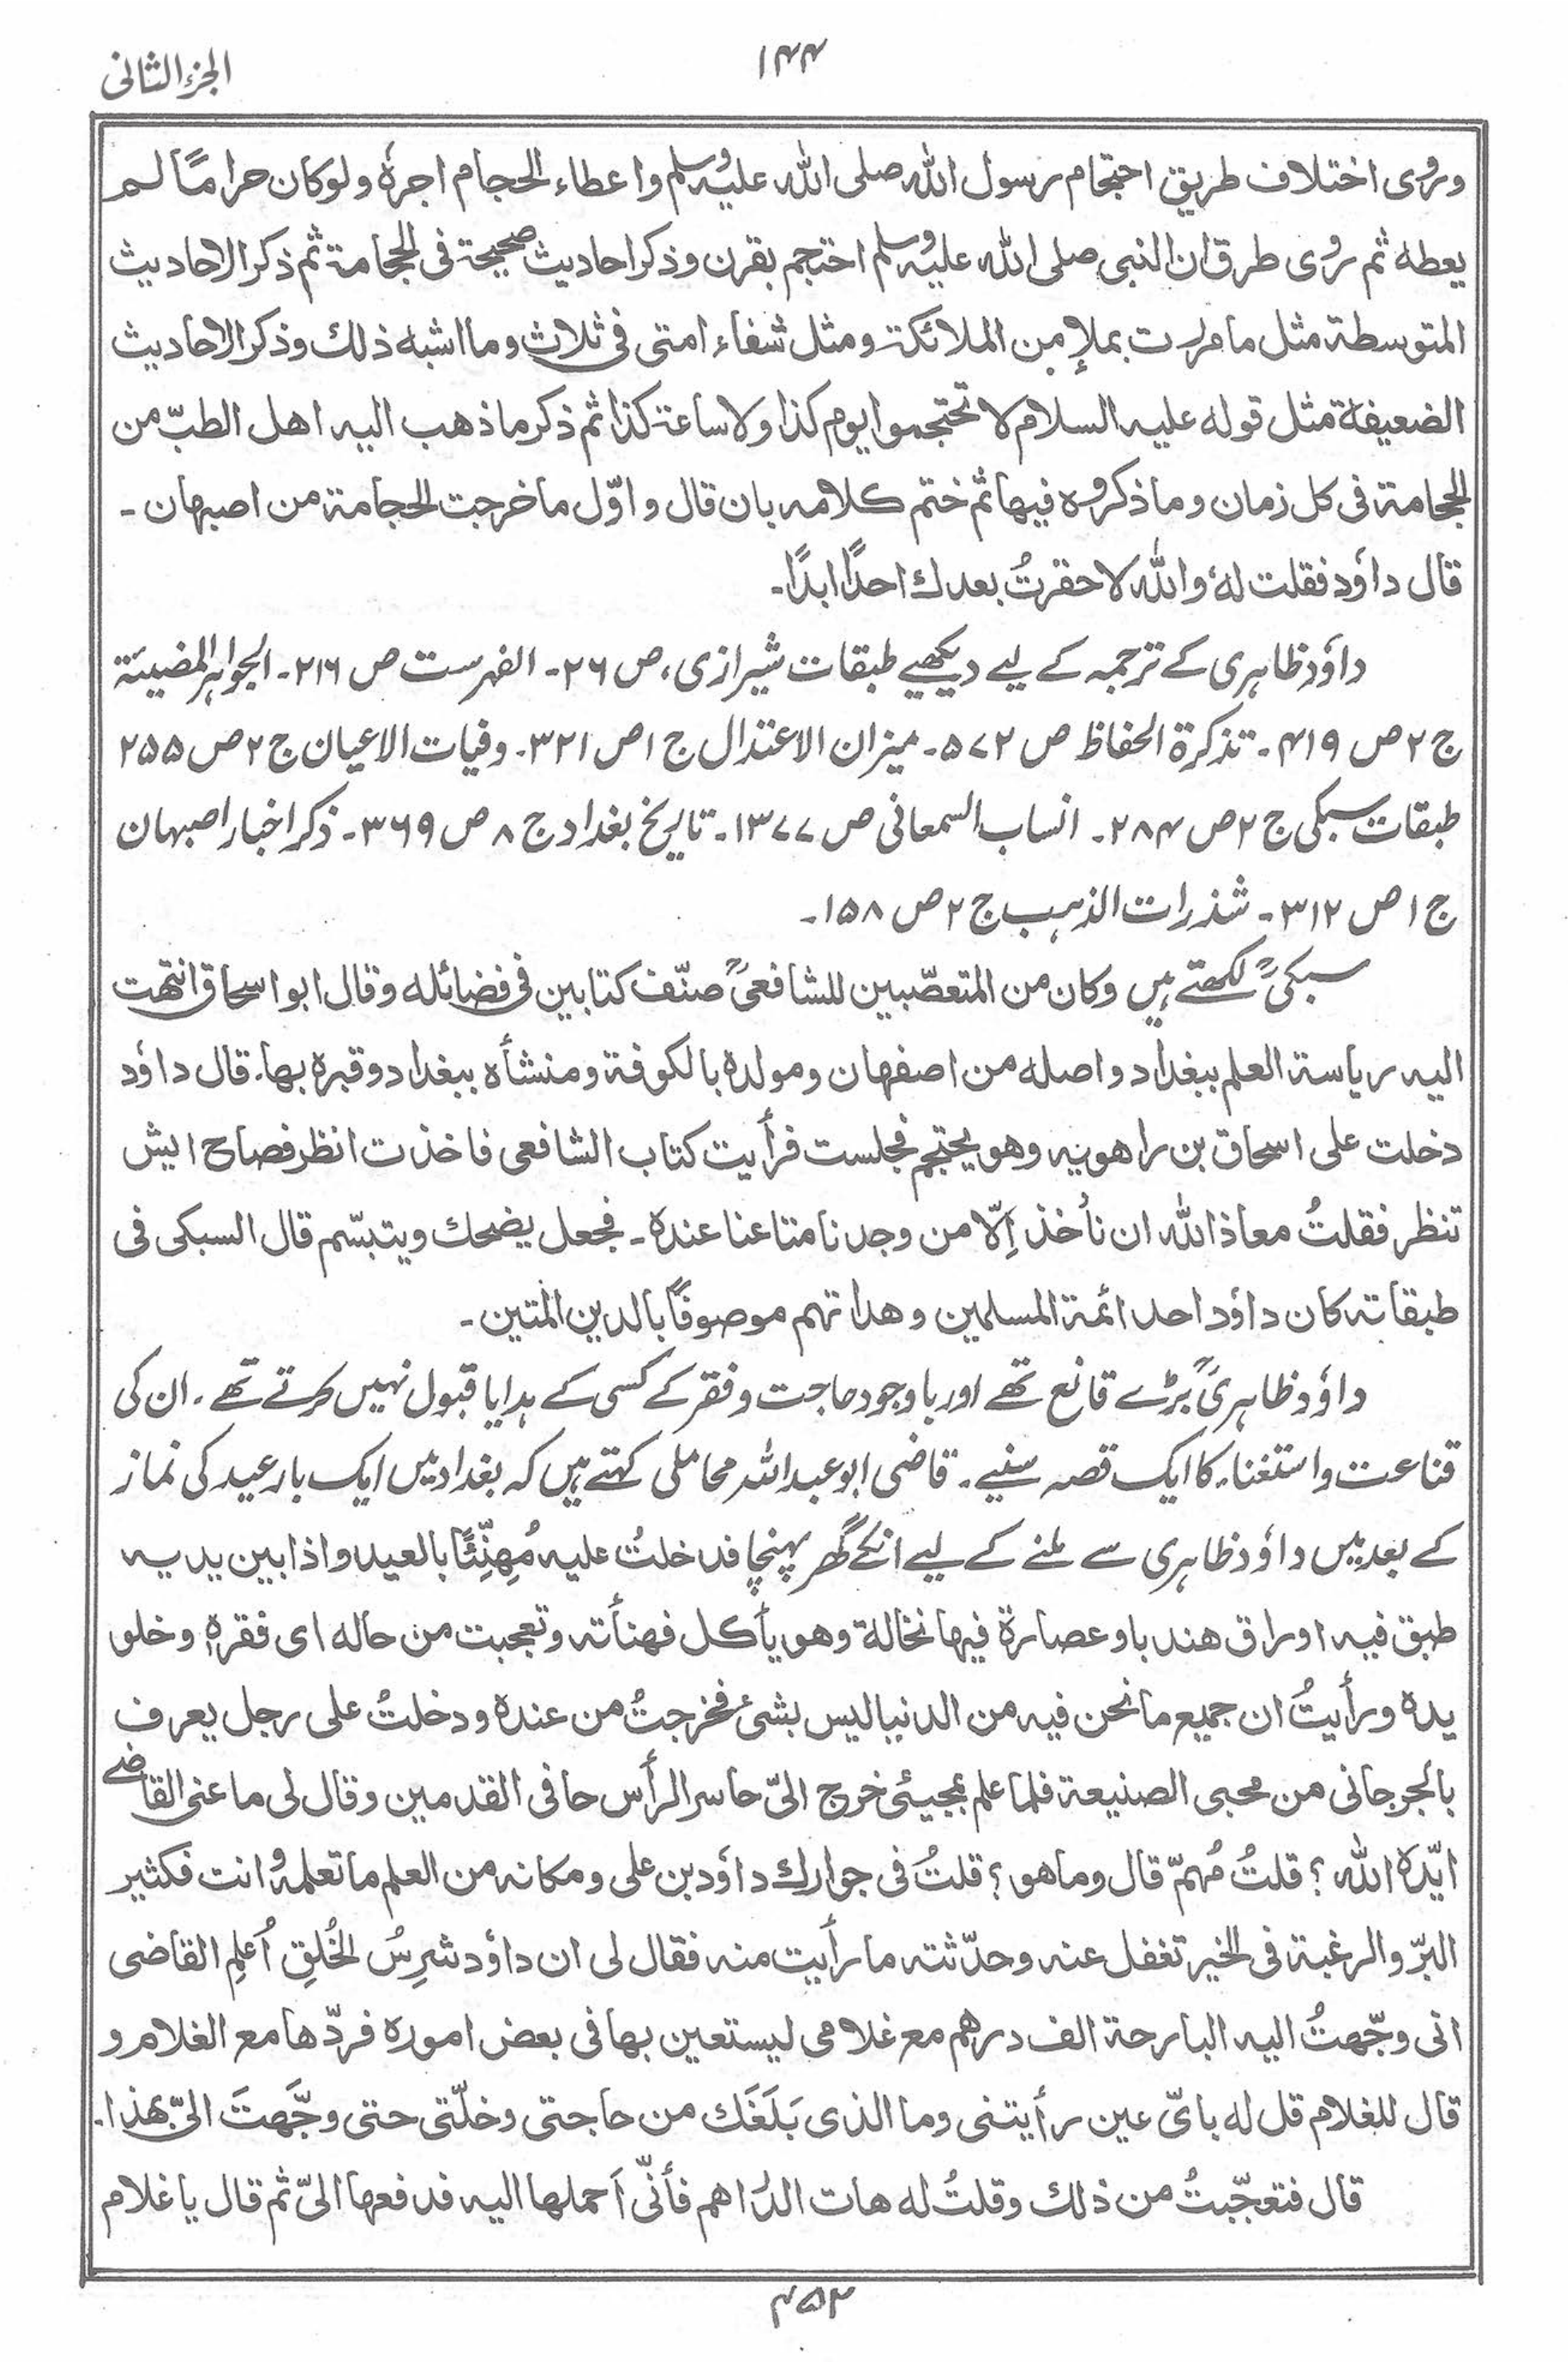 ۱۴۴
الجزء الثانی
وروی اختلاف طریق احتجام رسول اللہ صلی اللہ علیہ وسلم واعطاء الحجام اجرہٗ ولوکان حرامًا لم
یعطہ ثم روی طرق ان النبی صلی اللہ علیہ وسلم احتجم بقرن وذکر احادیث صحیحۃ فی الحجامۃ ثم ذکر الاحادیث
المتوسطۃ مثل ما مررت بملإ من الملائکۃ ومثل شفاء امتی فی ثلاث وما اشبہ ذلك وذکر الاحادیث
الضعیفۃ مثل قولہ علیہ السلام لا تحتجموا یوم کذا ولا ساعۃ کذا ثم ذکر ما ذھب الیہ اھل الطبّ من
الحجامۃ فی کل زمان وما ذکروہ فیھا ثم ختم کلامہ بان قال واوّل ما خرجت الحجامۃ من اصبھان ۔
قال داؤد فقلت لہٗ واللہ لا حقرتُ بعدك احدًا ابدًا۔
داؤد ظاہری کے ترجمہ کے لیے دیکھیے طبقات شیرازی، ص ۲۶۔ الفہرست ص ۲۱۶۔ الجواہر المضیئۃ
ج ۲ ص ۴۱۹۔ تذکرۃ الحفاظ ص ۵۷۲۔ میزان الاعتدال ج ۱ ص ۳۲۱۔ وفیات الاعیان ج ۲ ص ۲۵۵
طبقات سبکی ج ۲ ص ۲۸۴۔ انساب السمعانی ص ۱۳۷۷۔ تاریخ بغداد ج ۸ ص ۳۶۹۔ ذکر اخبار اصبہان
ج ۱ ص ۳۱۲۔ شذرات الذہب ج ۲ ص ۱۵۸۔
سبکیؒ لکھتے ہیں وکان من المتعصّبین للشافعیؒ صنّف کتابین فی فضائلہ وقال ابو اسحاق انتھت
الیہ ریاسۃ العلم ببغداد واصلہ من اصفھان ومولدہ بالکوفۃ ومنشأہ ببغداد وقبرہ بھا۔ قال داؤد
دخلت علی اسحاق بن راھویہ وھو یحتجم فجلست فرأیت کتاب الشافعی فاخذت انظر فصاح ایش
تنظر فقلتُ معاذ اللہ ان نأخذ اِلّا من وجدنا متاعنا عندہ ۔ فجعل یضحك ویتبسّم قال السبکی فی
طبقاتہ کان داؤد احد ائمۃ المسلمین وھداتھم موصوفًا بالدین المتین ۔
داؤد ظاہریؒ بڑے قانع تھے اور باوجود حاجت وفقر کے کسی کے ہدایا قبول نہیں کرتے تھے۔ ان کی
قناعت واستغناء کا ایک قصہ سنیے۔ قاضی ابو عبداللہ محاملی کہتے ہیں کہ بغداد میں ایک بار عید کی نماز
کے بعد میں داؤد ظاہری سے ملنے کے لیے انکے گھر پہنچا فدخلتُ علیہ مُھَنِّئًا بالعید واذا بین یدیہ
طبق فیہ اوراق ھندبا وعصارۃ فیھا نخالۃ وھو یأکل فھنأتہ وتعجبت من حالہ ای فقرہٖ وخلو
یدہ ورأیتُ ان جمیع ما نحن فیہ من الدنیا لیس بشئ فخرجتُ من عندہ ودخلتُ علی رجل یعرف
بالجرجانی من محبی الصنیعۃ فلما علم بمجیئی خرج الیّ حاسر الرأس حافی القدمین وقال لی ما عنی القاضی
ایّدہ اللہ ؟ قلتُ مُھمّ قال وما ھو ؟ قلتُ فی جوارك داؤد بن علی ومکانہ من العلم ما تعلمہٗ وانت فکثیر
البرّ والرغبۃ فی الخیر تغفل عنہ وحدّثتہ ما رأیت منہ فقال لی ان داؤد شرِسُ الخُلقِ اُعلِم القاضی
انی وجّھتُ الیہ البارحۃ الف درھم مع غلامی لیستعین بھا فی بعض امورہ فردّھا مع الغلام و
قال للغلام قل لہ بایّ عین رأیتنی وما الذی بَلَغَك من حاجتی وخلّتی حتی وجَّھتَ الیّ بھذا۔
قال فتعجّبتُ من ذلك وقلتُ لہ ھات الدراھم فأنّی اَحملھا الیہ فدفعھا الیّ ثم قال یا غلام
۴۵۲